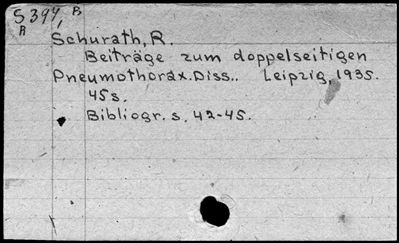 S 397, B
A
Schurath, R.
Beiträge zum doppelseitigen
Pneumothorax. Diss.. Leipzig, 1935.
45s.
Bibliogr. s. 42-45.